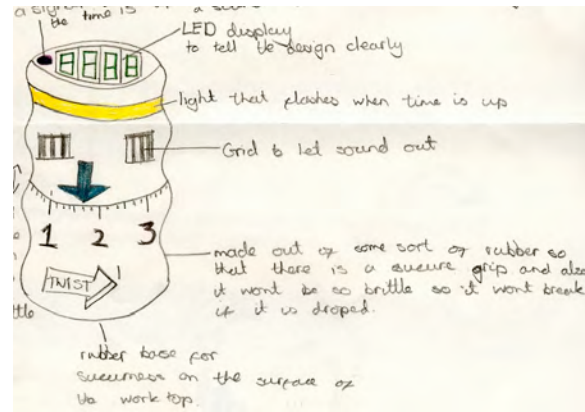 a signal
the time is
LED display
to tell the design clearly
light that flashes when time is up
Grid to let sound out
1 2 3
TWIST
made out of some sort of rubber so
that there is a sucure grip and also
it wont be so brittle so it wont break
if it is droped.
rubber base for
sucurness on the surface of
the work top.